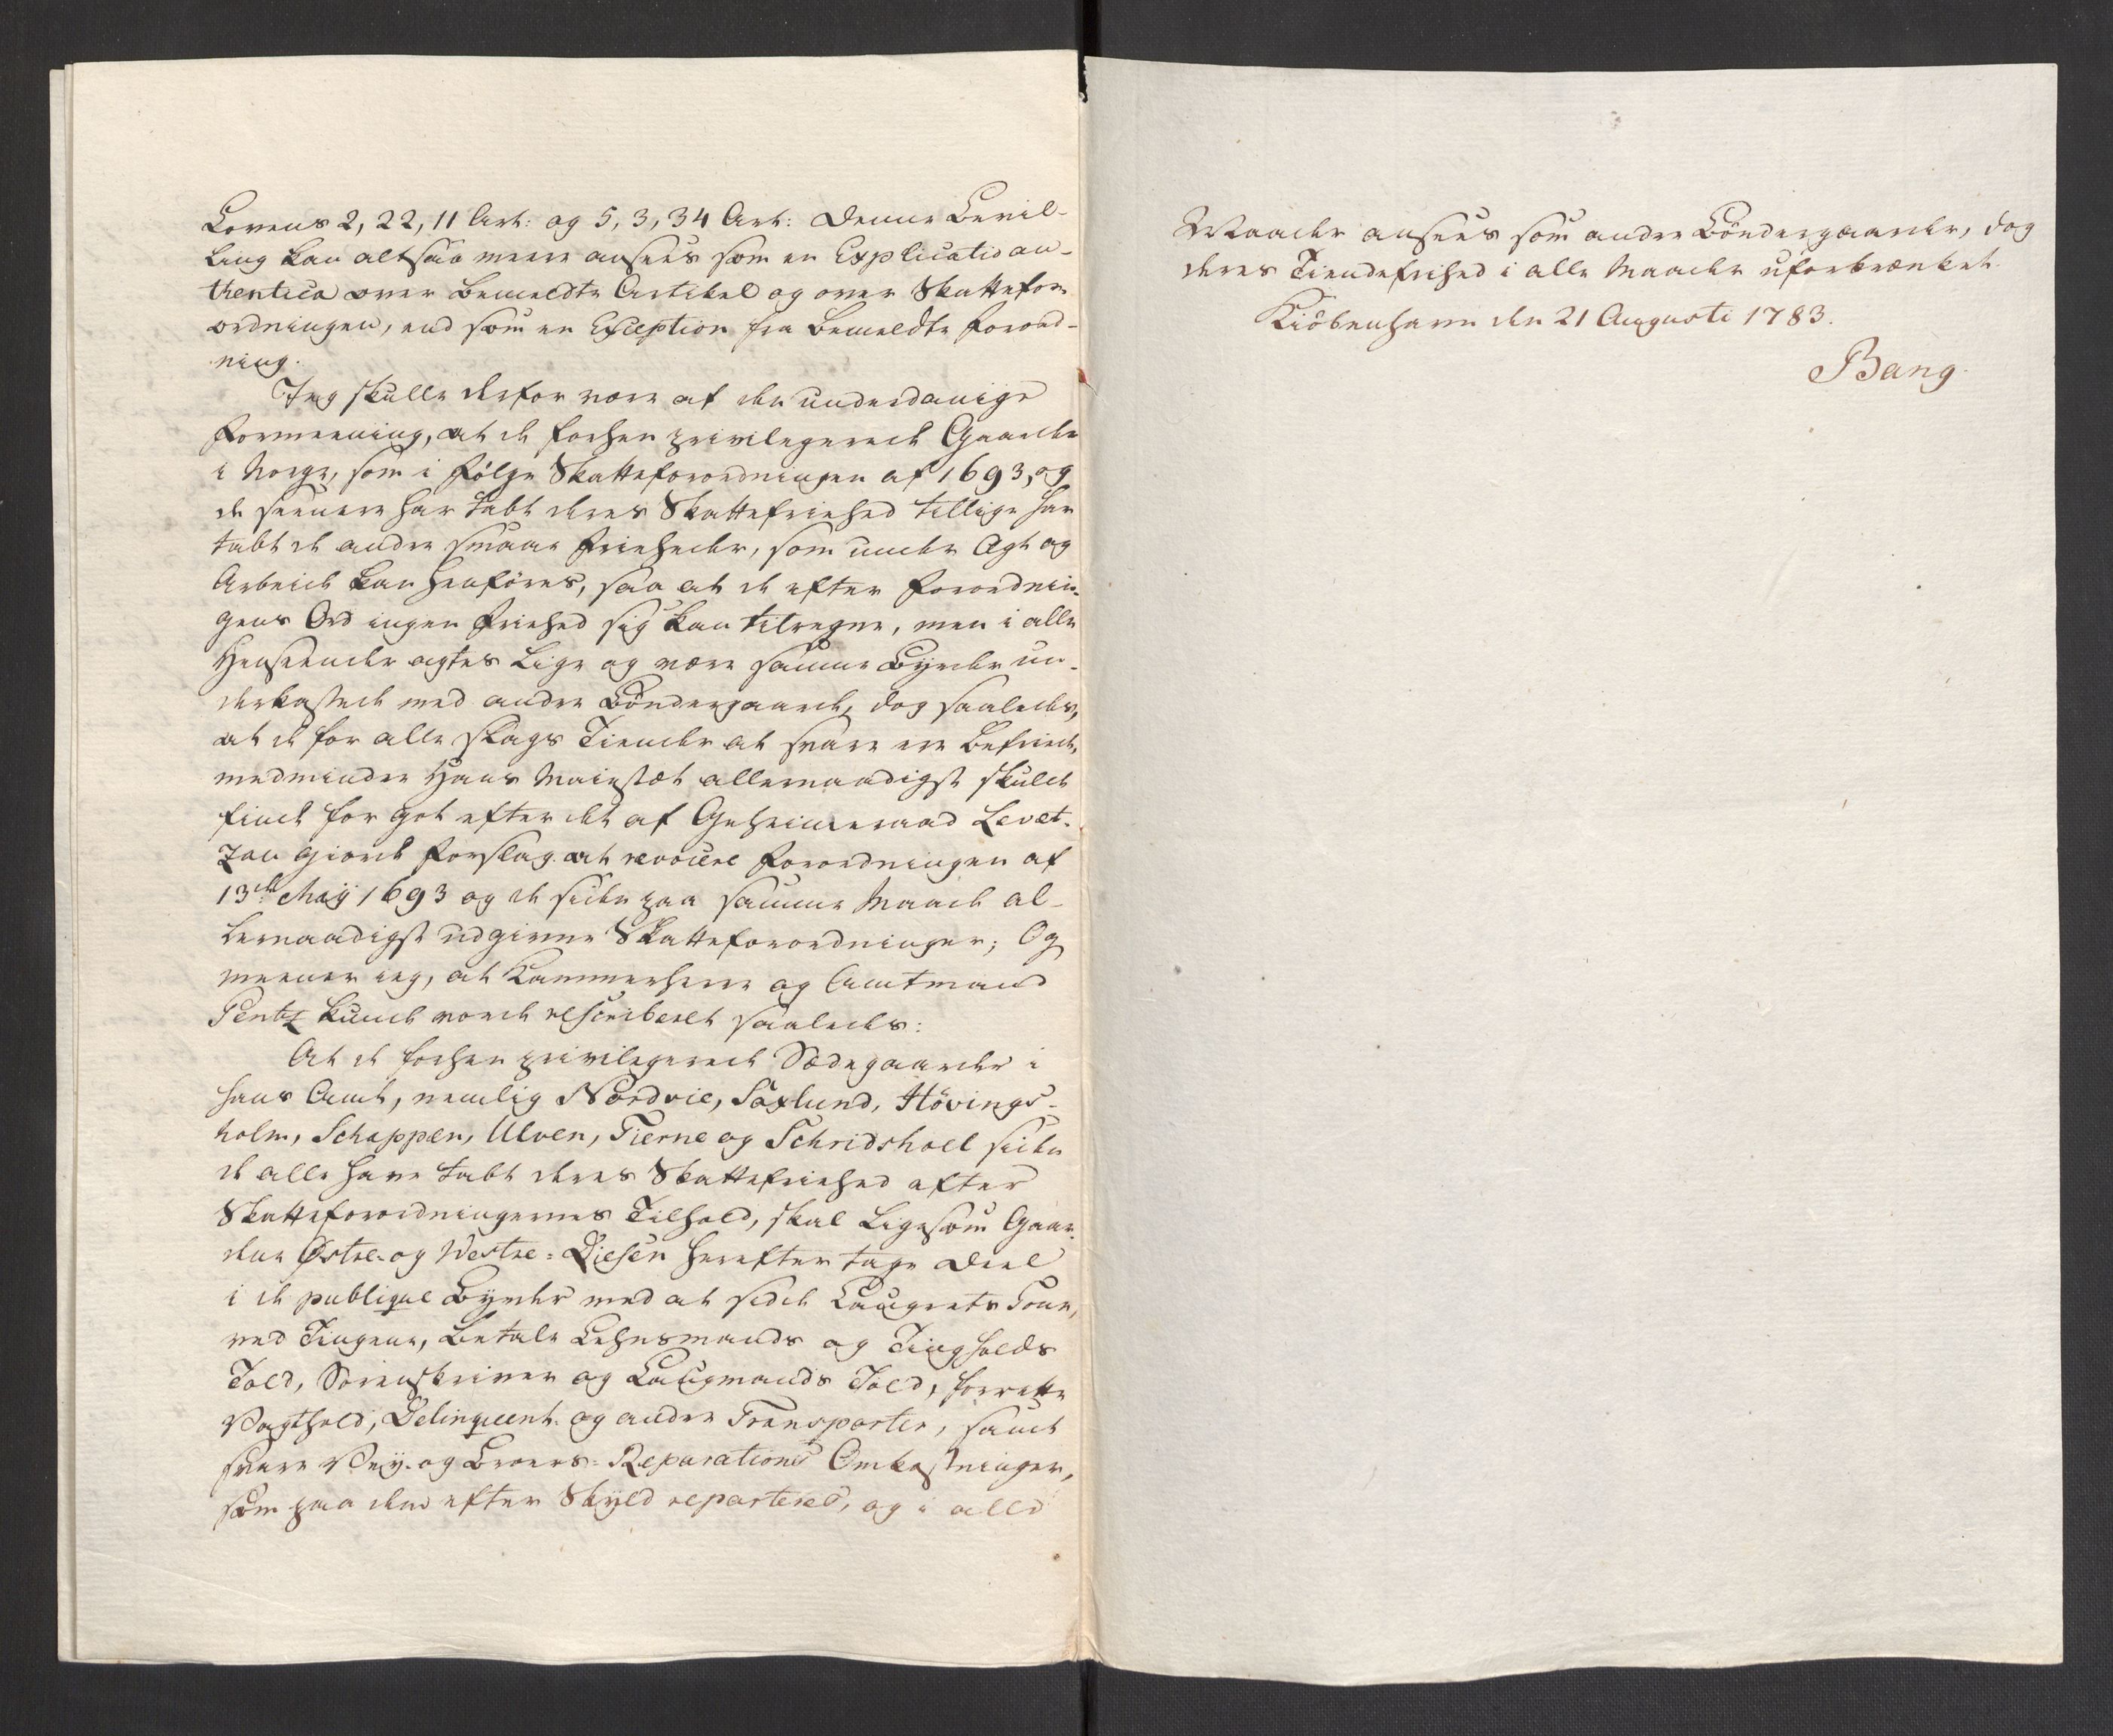 Lovens 2, 22, 11 Art: og 5, 3, 34 Art: denne Bevil-
ling kan altsaa meere ansees som en Explicatio au-
thentica over bemeldte Artikel og over Skattefor
ordningen, end som en Exception fra bemeldte Forord-
ning.
Jeg skulle derfor være af den underdanige
Formeening, at de forhen privilegerede Gaarde
i Norge, som i følge Skatteforordningen af 1693, og
de seenere har tabt deres Skattefriehed tillige har
tabt de andre smaae Friheder, som under Agt og
Arbeide kan henføres, saa at de efter Forordnin-
gens Ord ingen Friehed sig kan tilregne, men i alle
Henseender agtes lige og være samme Byrder un-
derkastede med andre Bøndergaarde, dog saaledes,
at de for alle slags Tiender at svare ere befriede,
medmindre Hans Maiestæt allernaadigst skulde
finde for got efter det af Geheimeraad Levet-
zau giorde Forslag at revocere Forordningen af
13de Maij 1693 og de siden paa samme Maade al-
lernaadigst udgivne Skatteforordninger; Og
meener ieg, at Kammerherre og Amtmand
Pentz kunde vorde rescriberet saaledes:
At de forhen privilegerede Sædegaarder i
hans Amt, nemlig Nordvie, Saxlund, Hövings-
holm, Schappen, Ulven, Tierne og Schridshoel siden
de alle have tabt deres Skattefriehed efter
Skatteforordningernes Tilhold, skal ligesom Gaar-
dene Østre- og Westre-Diesen herefter tage Deel
i de publique Byrder med at sidde Laugrets Touer,
ved Tingene, betale Lehnsmands og Tingholds
Told, Sorenskriver og Laugmands Told, forrette
Vagthold, Delinquent- og andre Transporter, samt
svare Vey- og Broers-Reparations Omkostninger,
som paa dem efter Skyld reparteres, og i alle
Maader ansees som andre Bøndergaarder, dog
deres Tiendefrihed i alle Maader uforkrænket.
Kiöbenhavn den 21 Augusti 1783.
Bang.